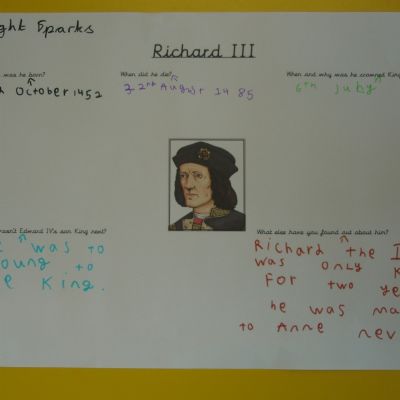 ght Sparks
Richard III
was he born?
October 1452
When did he die?
22nd August 1485
When and why was he crowned King
6th July
wasn't Edward IV's son King next?
was to
oung to
e King.
What else have you found out about him?
Richard the I
was only K
For two ye
he was ma
to Anne nev